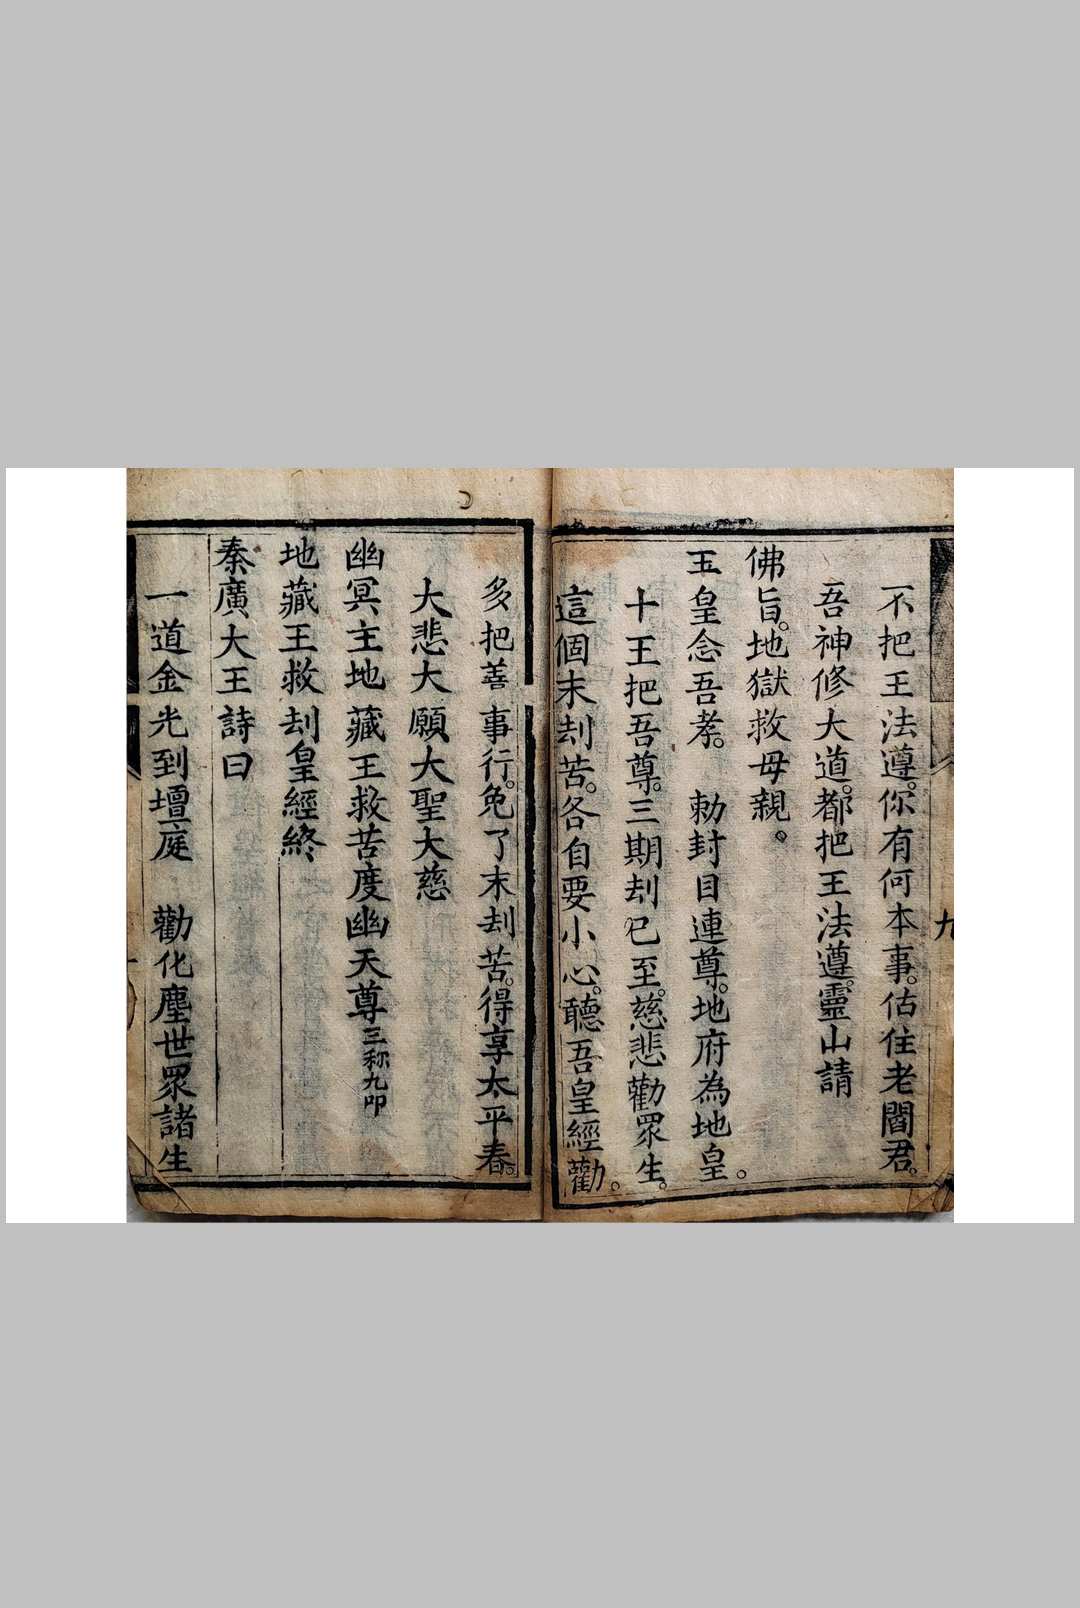 不把王法遵。你有何本事。估住老閻君。
吾神修大道。都把王法遵。靈山請
佛旨。地獄救母親。
玉皇念吾孝。勅封目連尊。地府為地皇。
十王把吾尊。三期刦已至。慈悲勸眾生。
這個末刦苦。各自要小心。聽吾皇經勸。
多把善事行。免了末刦苦。得享太平春。
大悲大願大聖大慈
幽冥主地藏王救苦度幽天尊三称九叩
地藏王救刦皇經終
秦廣大王詩曰
一道金光到壇庭　勸化塵世眾諸生
九